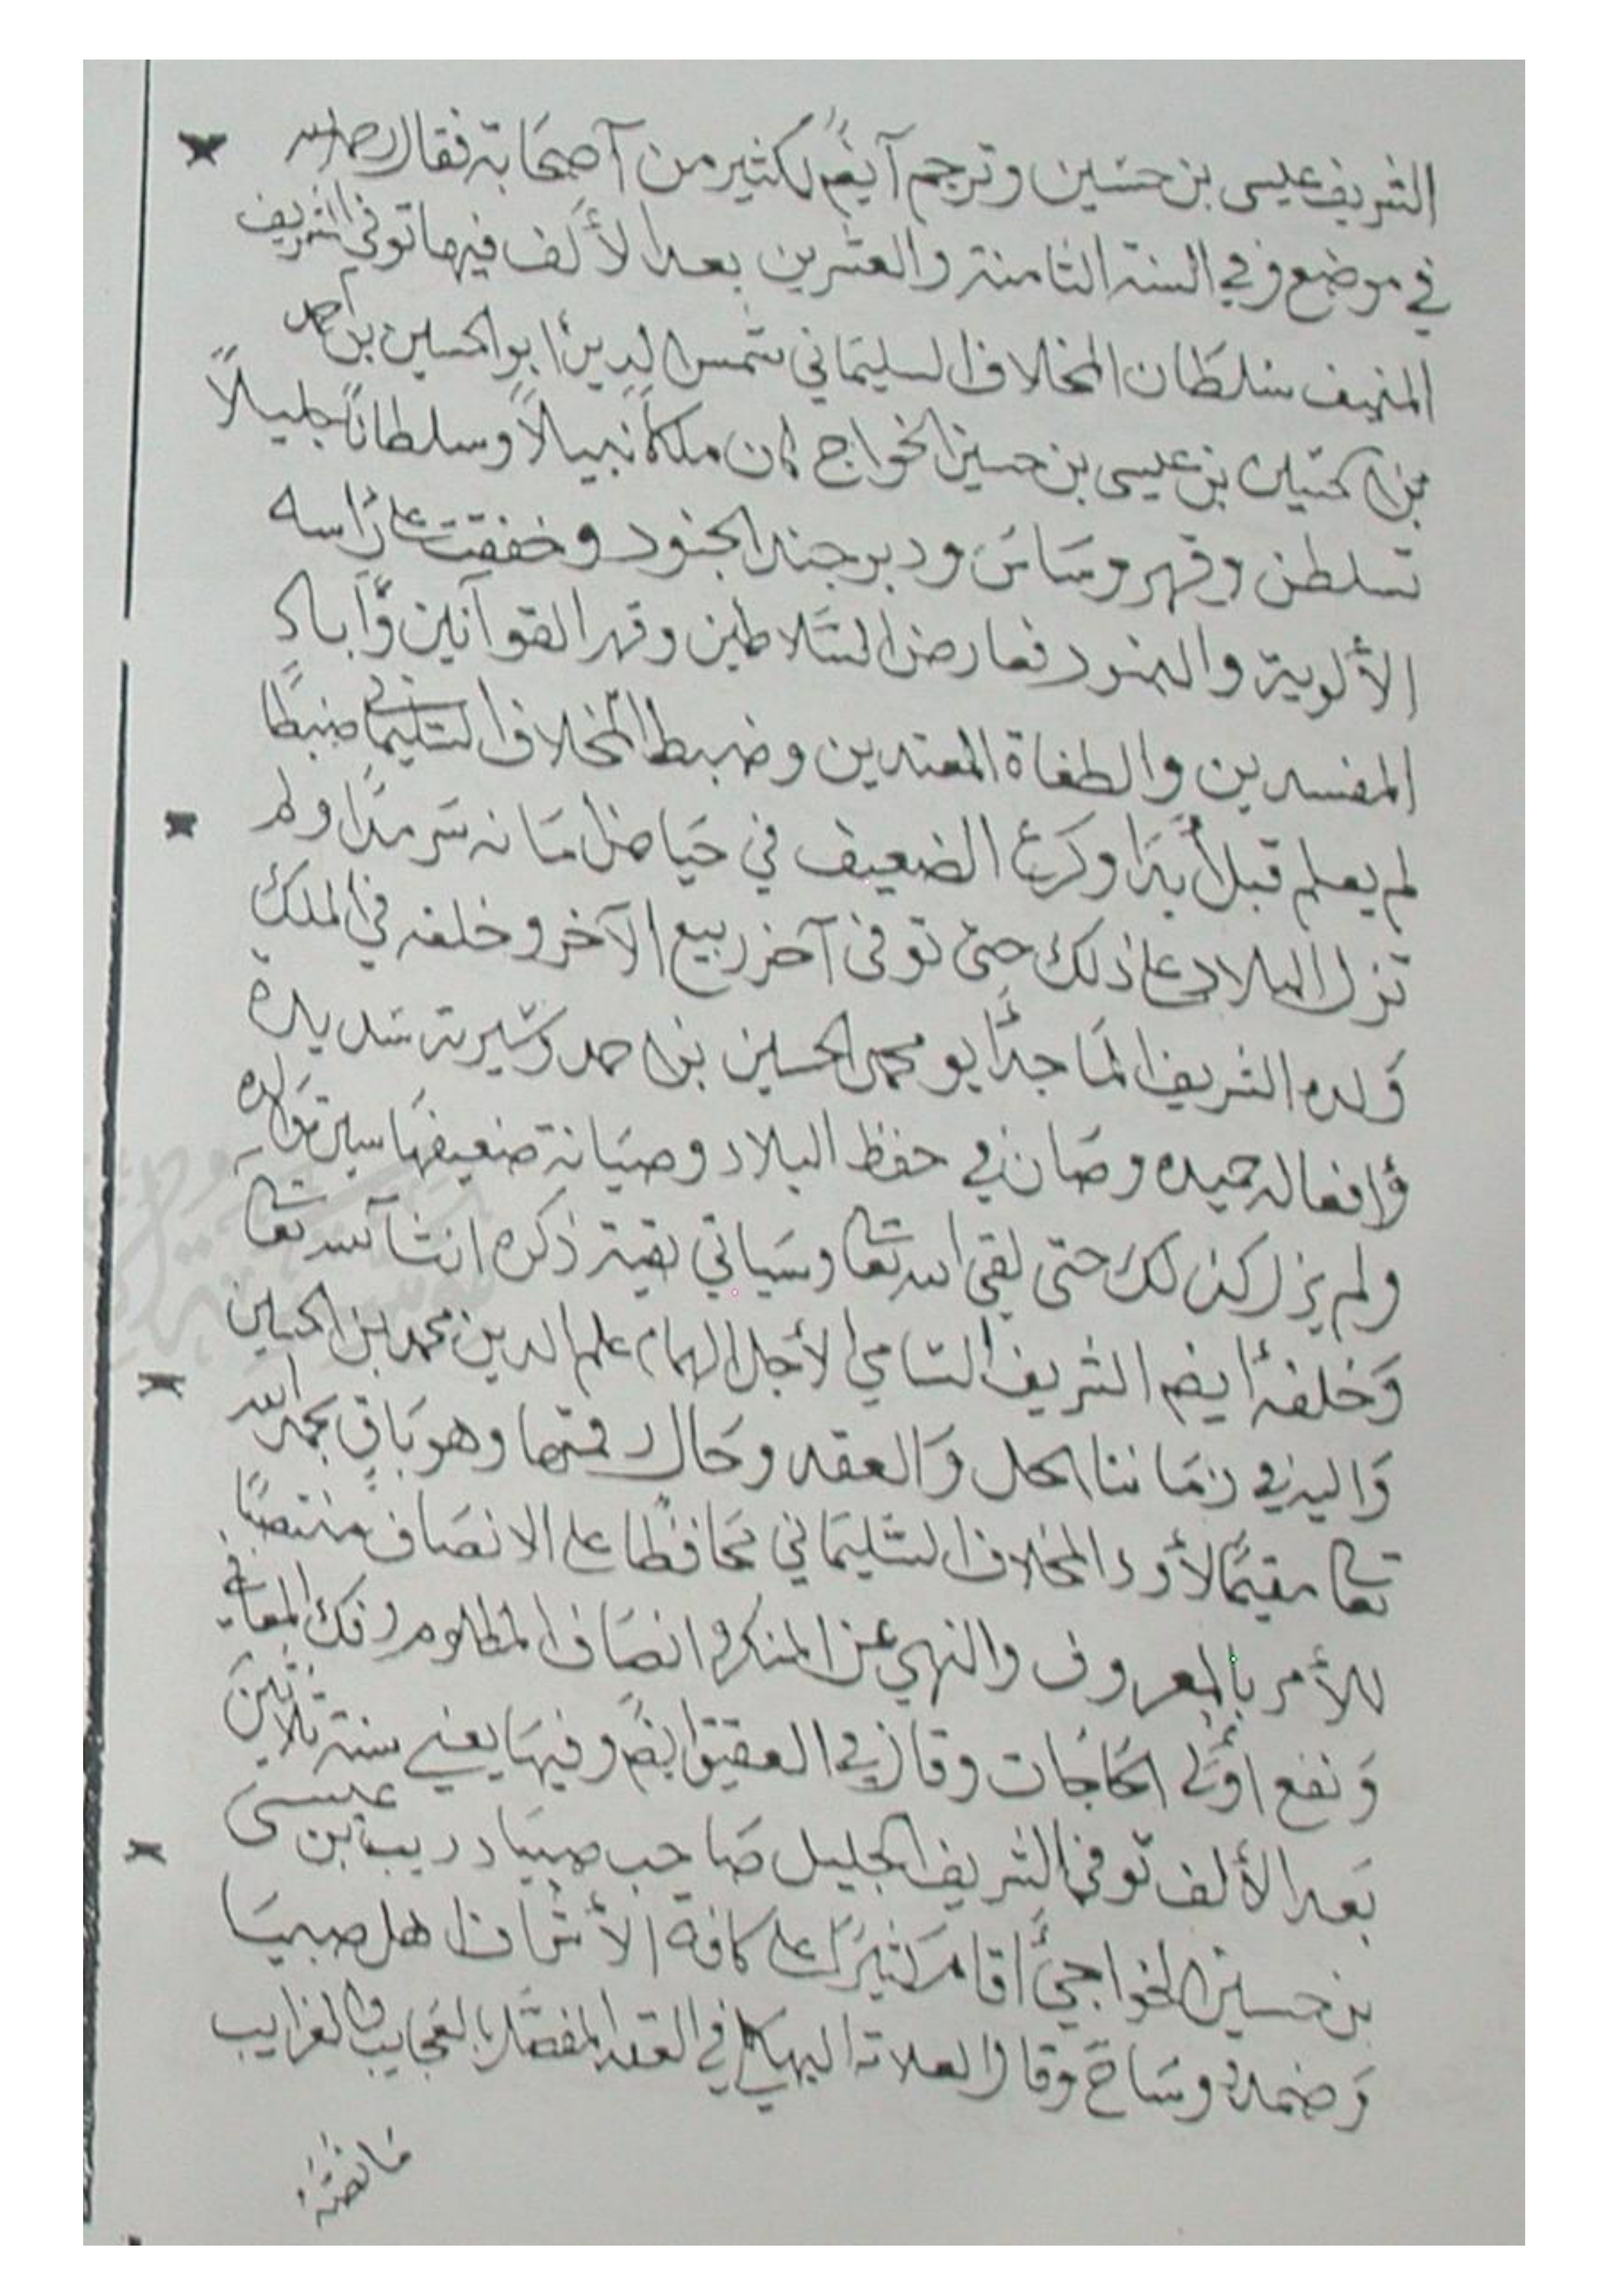 الشريف عيسى بن حسين وترجم آيضًم لكثير من آصحَابة فقال رحمه الله
في موضع وفي السنة الثامنة والعشرين بعد الألف فيها توفي الشريف
المنيف سلطَان المخلاف السليمَاني شمس الدين أبو الحسين بن أحمد
بن الحسَين بن عيسى بن حسين الخواج كان ملكاً نبيلاً وسلطاناً جليلاً
تسلطن وقهر وسَاسَ ودبر جند الجنود وخفقت على رَاسه
الألوية والبنود فعارض السَّلاطين وقهر القوآنين وَّآباد
المفسدين والطغاة المعتدين وضبط المخلاف السّليمَاني ضبطًا
لم يعلم قبل أبدَا وكرع الضعيف في حيَاض امَانه سَرمدًا ولم
تزل البلاد على ذلك حتى توفى آخر ربيع الآخر وخلفه في الملك
وَلده الشريف المَاجد أبو محمد الحسين بن احمد وَسيرته سَديدة
وَافعاله حميده وصَار في حفظ البلاد وصيَانة ضعيفهَا سيرة وَالده
ولم يزل كذلك حتى لقى الله تعَالى وسَياتي بقية ذكره انشآ الله تعَالى
وَخلفهُ أيضم الشريف السَامي الأجل الهمام علم الدين محمد بن الحسين
وَاليه في زمَاننا الحل وَالعقد وحَال رقمتها وهو بَاقٍ بحمد الله
تعالى مقيمًا لأود المخلاف السّليمَاني مَحافظًا على الانصَاف منتصبًا
للأمر بالمعروف والنهي عن المنكر وانصَاف المظلوم وفك المعَاني
وَنفع اولَى الحَاجَات وقال في العقيق ايضًم وفيهَا يعني سنة ثلاثين
بَعد الألف توفى الشريف الجليل صَاحب صبيَا دريب بن عيسىَ
بن حسين الخواجي أقامَ كثيرًا على كافة الأشرَاف اهل صبيَا
وَضمد وسَاحَ وقال العلامة البهكلي في العقد المفصَّل بالعَجايب والغرايب